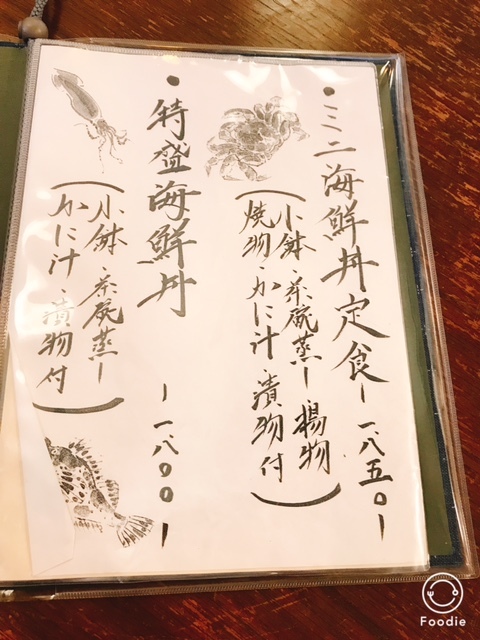 ・ミニ海鮮丼定食ー一、八五〇ー
(小鉢・茶碗蒸し・揚物
焼物・かに汁・漬物付)
・特盛海鮮丼 ー一、八〇〇ー
(小鉢・茶碗蒸し
かに汁・漬物付)
Foodie